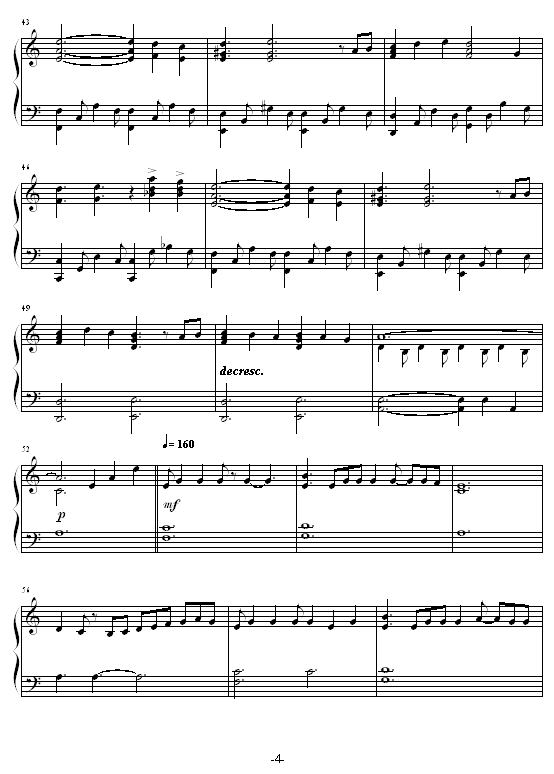 43
46
49
decresc.
52
♩= 160
p
mf
56
-4-